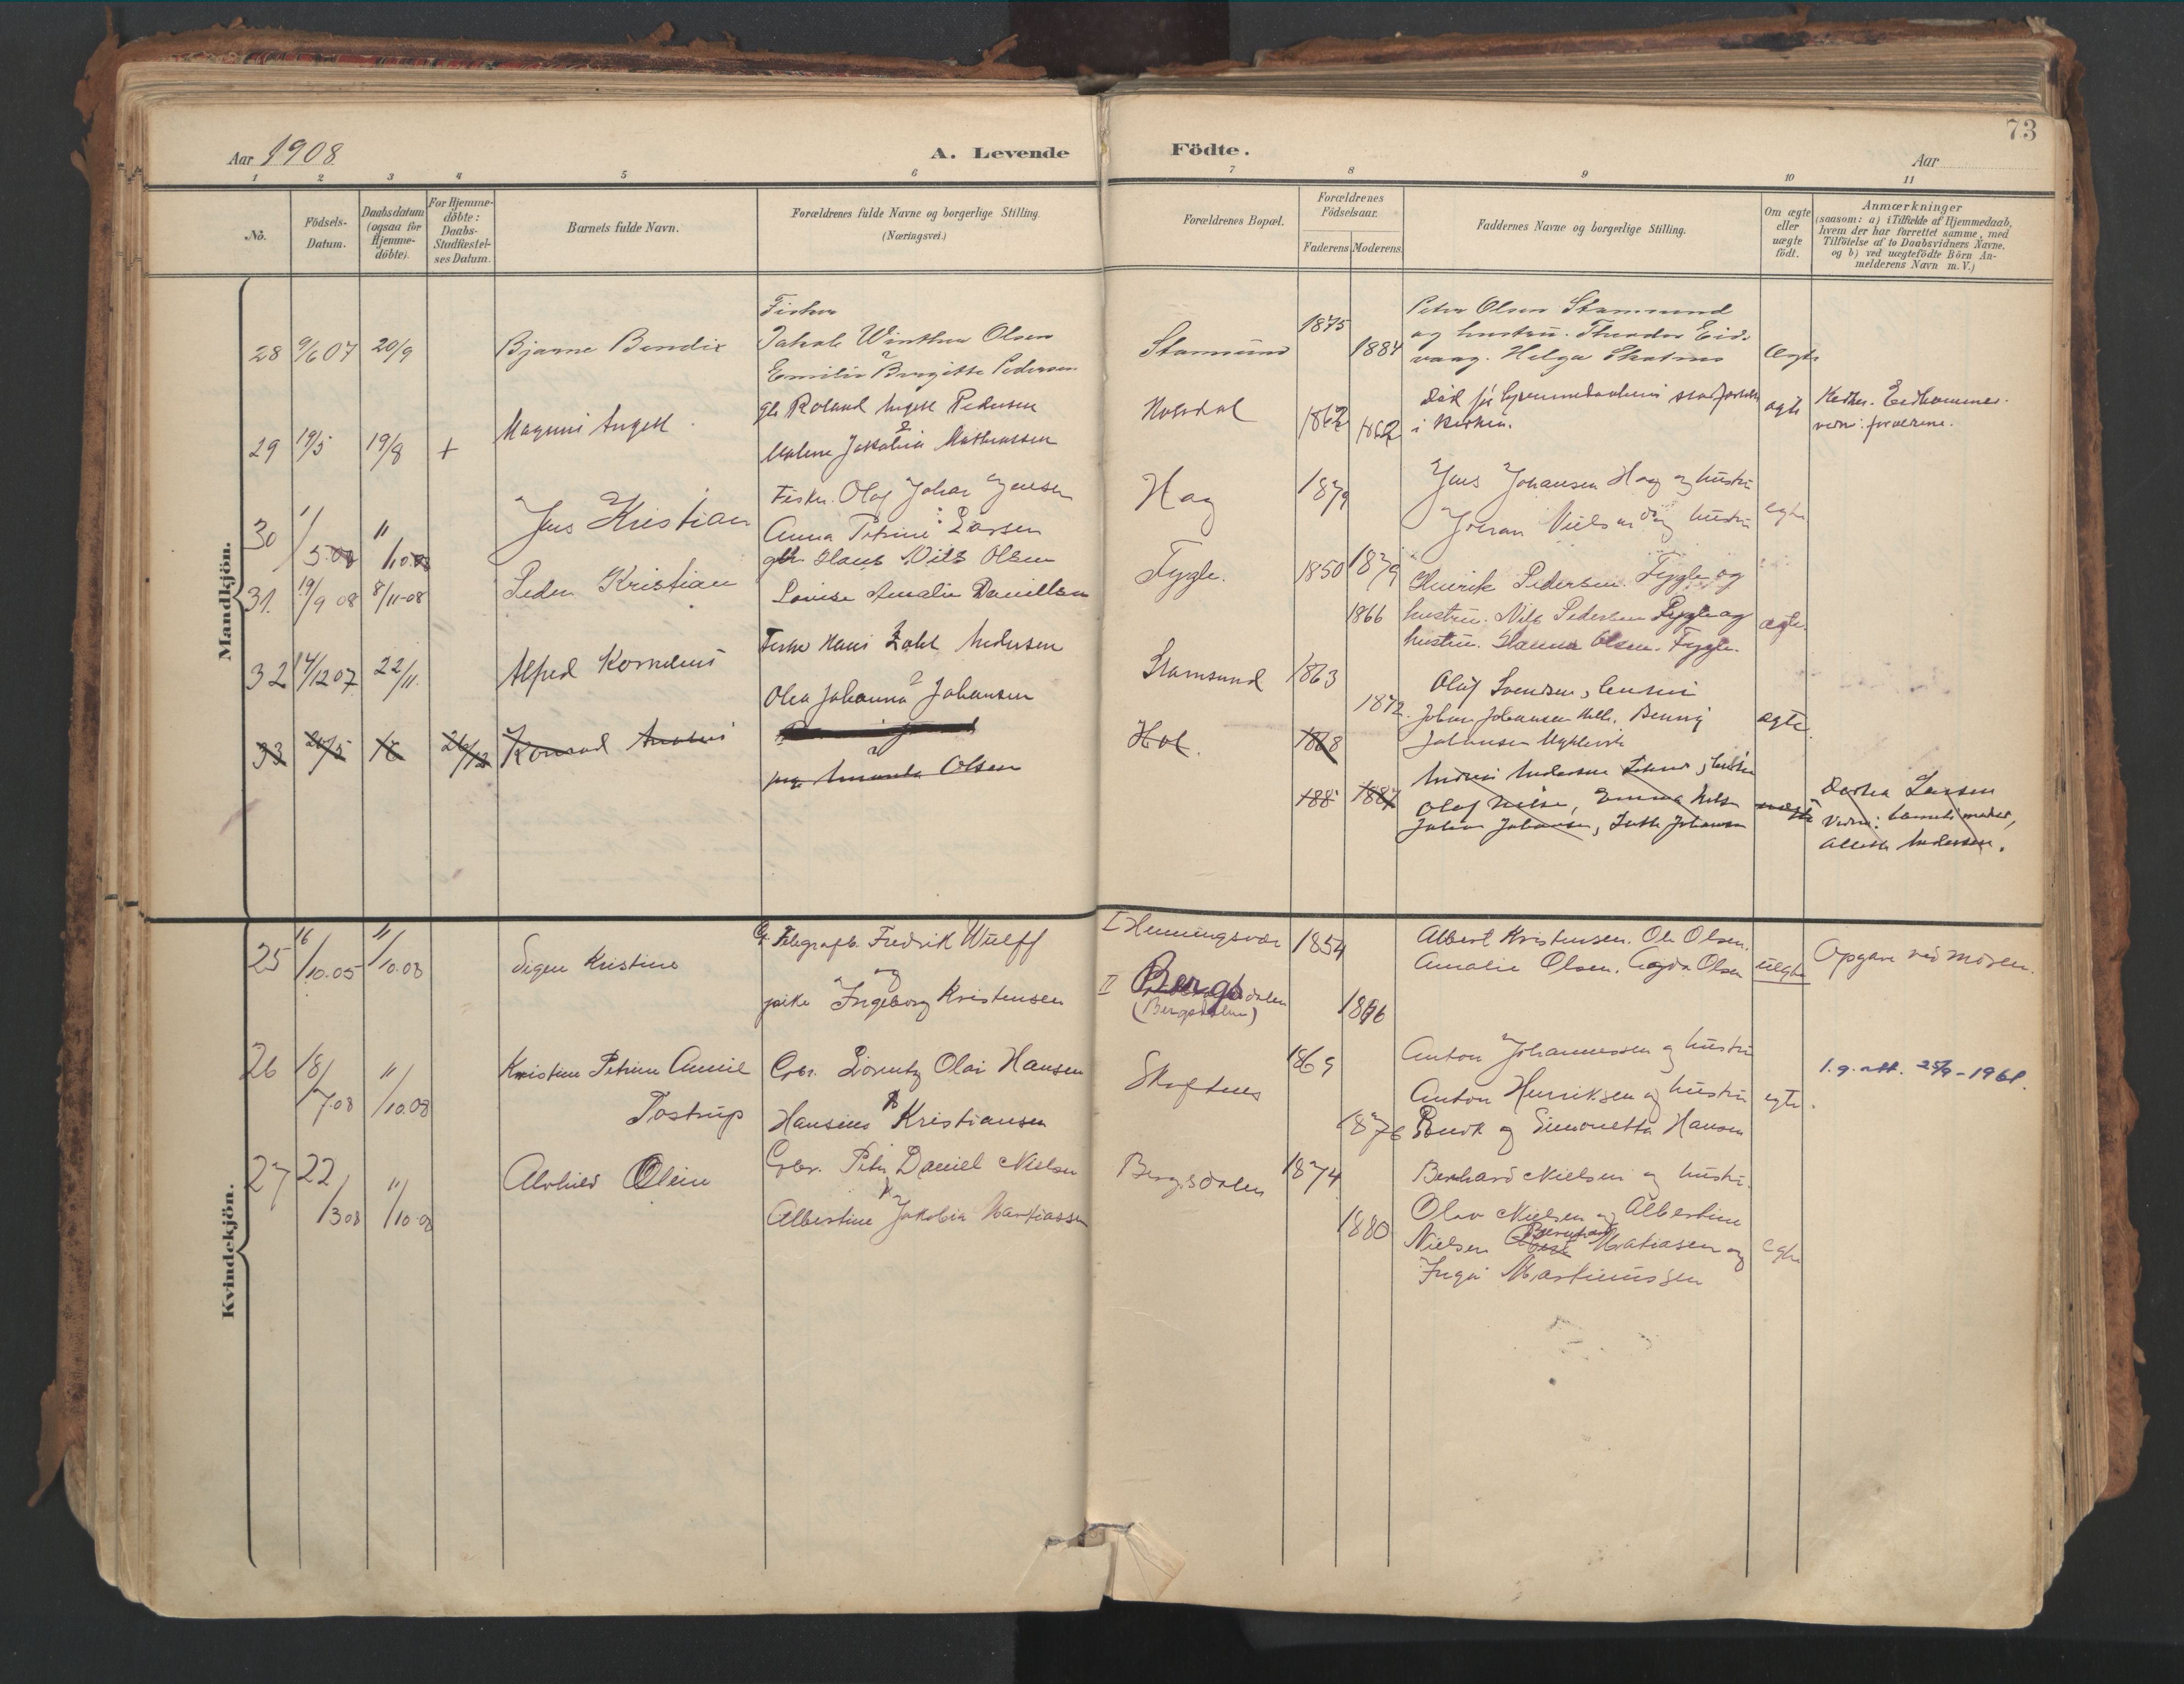 73
Aar 1908
A. Levende Födte.
Aar
1 2 3 4 5 6 7 8 9 10 11
No.
Födsels-Datum.
Daabsdatum (ogsaa for Hjemme-döbte).
For Hjemme-döbte: Daabs-Stadfæstel-ses Datum.
Barnets fulde Navn.
Forældrenes fulde Navne og borgerlige Stilling.
(Næringsvei.)
Forældrenes Bopæl.
Forældrenes Födselsaar.
Faderens Moderens
Faddernes Navne og borgerlige Stilling.
Om ægte eller uægte födt.
Anmærkninger
(saasom: a) i Tilfælde af Hjemmedaab, hvem der har forrettet samme, med Tilföielse af to Daabsvidners Navne, og b) ved uægtefödte Börn An-melderens Navn m. V.)
Mandkjön.
28 9/6 07 20/9 Bjarne Bendix
Fisker
Jakob Winther Olsen
Emilie Birgitte Pedersen
Stamsund 1875 1884
Peter Olsen Stamsund
og hustru. Theodor Eids
vaag. Helga Skotnes
ægte
29 19/5 19/8 + Magnus Angell
gb Roland Angell Pedersen
Malene Jakobia Mathiassen
1862 1862
i kirken.
ægte
forældrene.
30 1/5.08 11/10.08 Jens Kristian
Fisker. Olaf Johan Jensen
Anna Petrine Larsen
Hag 1879 1879
Jens Johansen Hag og hustru
Johan Nielsen og hustru
egte
31. 19/9 08 8/11-08 Peder Kristian
gbr. Hans Nils Olsen
Lovise Amalie Daniellsen
Fygle. 1850 1866
Henrik Pedersen. Fygle og
hustru. Nils Pedersen Fygle og
hustru. Hanna Olsen. Fygle.
ægte.
32 14/12 07 22/11. Alfred Kornelius
Fisker Hans Zahl Andersen
Olea Johanna Johansen
Stamsund 1863 1872.
Olaf Svendsen, hustru
Johan Johansen Benny
Johansen
ægte.
33 20/5 26/12 Konrad
pige Amanda Olsen
Hol. 1868 188 1887
Andreas Andersen
Olaf Nilsen, Emma Nilsen
Johan Johansen, Johansen
uægte
Dorthea Larsen
Vidne: barnets moder,
Andersen.
Kvindekjön.
25 16/10.05 11/10.08 Signe Kristine
G. Telegrafb. Fredrik Wulff
og
pike Ingeborg Kristensen
I Henningsvær 1854
II Bergsdalen
(Bergsdalen) 1876
Albert Kristensen. Ole Olsen.
Amalie Olsen. Agda Olsen
uegte
Opgave ved moren.
26 18/7.08 11/10.08 Kristine Petrine Annie
Tostrup
Gbr. Lorentz Olai Hansen
Hansine Kristiansen
Skoftnes 1869 1876
Anton Johannessen og hustru
Anton Henriksen og hustru
og Simonetta Hansen
egte.
1. g. att. 25/9-1961.
27 22/3 08 11/10.08 Alvhild Oline
Gbr. Peter Daniel Nielsen
Albertine Jakobia Martiassen
Bergsdalen 1874 1880
Bernhard Nielsen og hustru.
Olav Nielsen og Albertine
Nielsen Bernhard Matiasen og
Inga Martinussen
egte